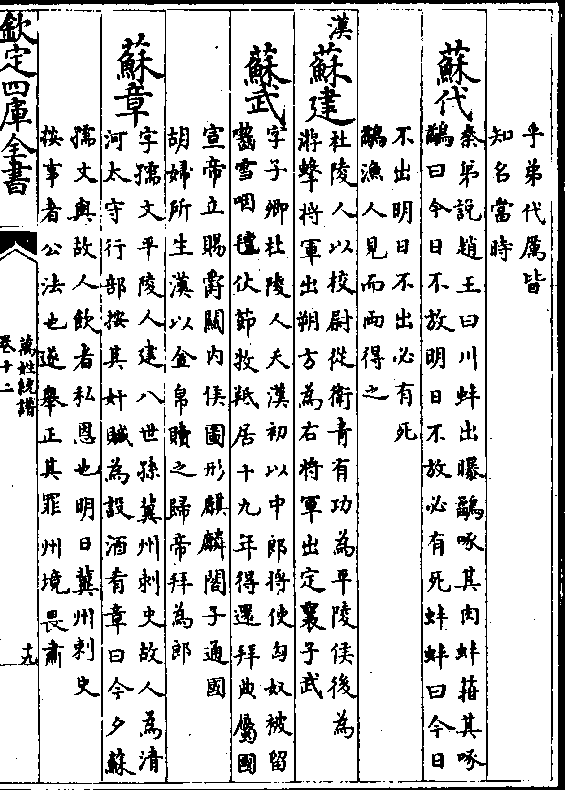 乎弟代厲皆
知名當時
蘇代
秦弟說趙王曰川蚌出曝鷸啄其肉蚌箝其啄
鷸曰今日不放明日不放必有死蚌蚌曰今日
不出明日不出必有死
鷸漁人見而兩得之
漢
蘇建
杜陵人以校尉從衛青有功為平陵侯後為
游蜂將軍出朔方為右將軍出定襄子武
蘇武
字子卿杜陵人天漢初以中郎將使匈奴被留
齧雪咽氊仗節牧羝居十九年得還拜典屬國
宣帝立賜爵關内侯圖形麒麟閣子通國
胡婦所生漢以金帛贖之歸帝拜為郎
蘇章
字孺文平陵人建八世孫冀州刺史故人為清
河太守行部按其奸贓為設酒肴章曰今夕蘇
孺文與故人飲者私恩也明日冀州刺史
按事者公法也遂舉正其罪州境畏肅
欽定四庫全書
萬姓統譜
卷十二
十九